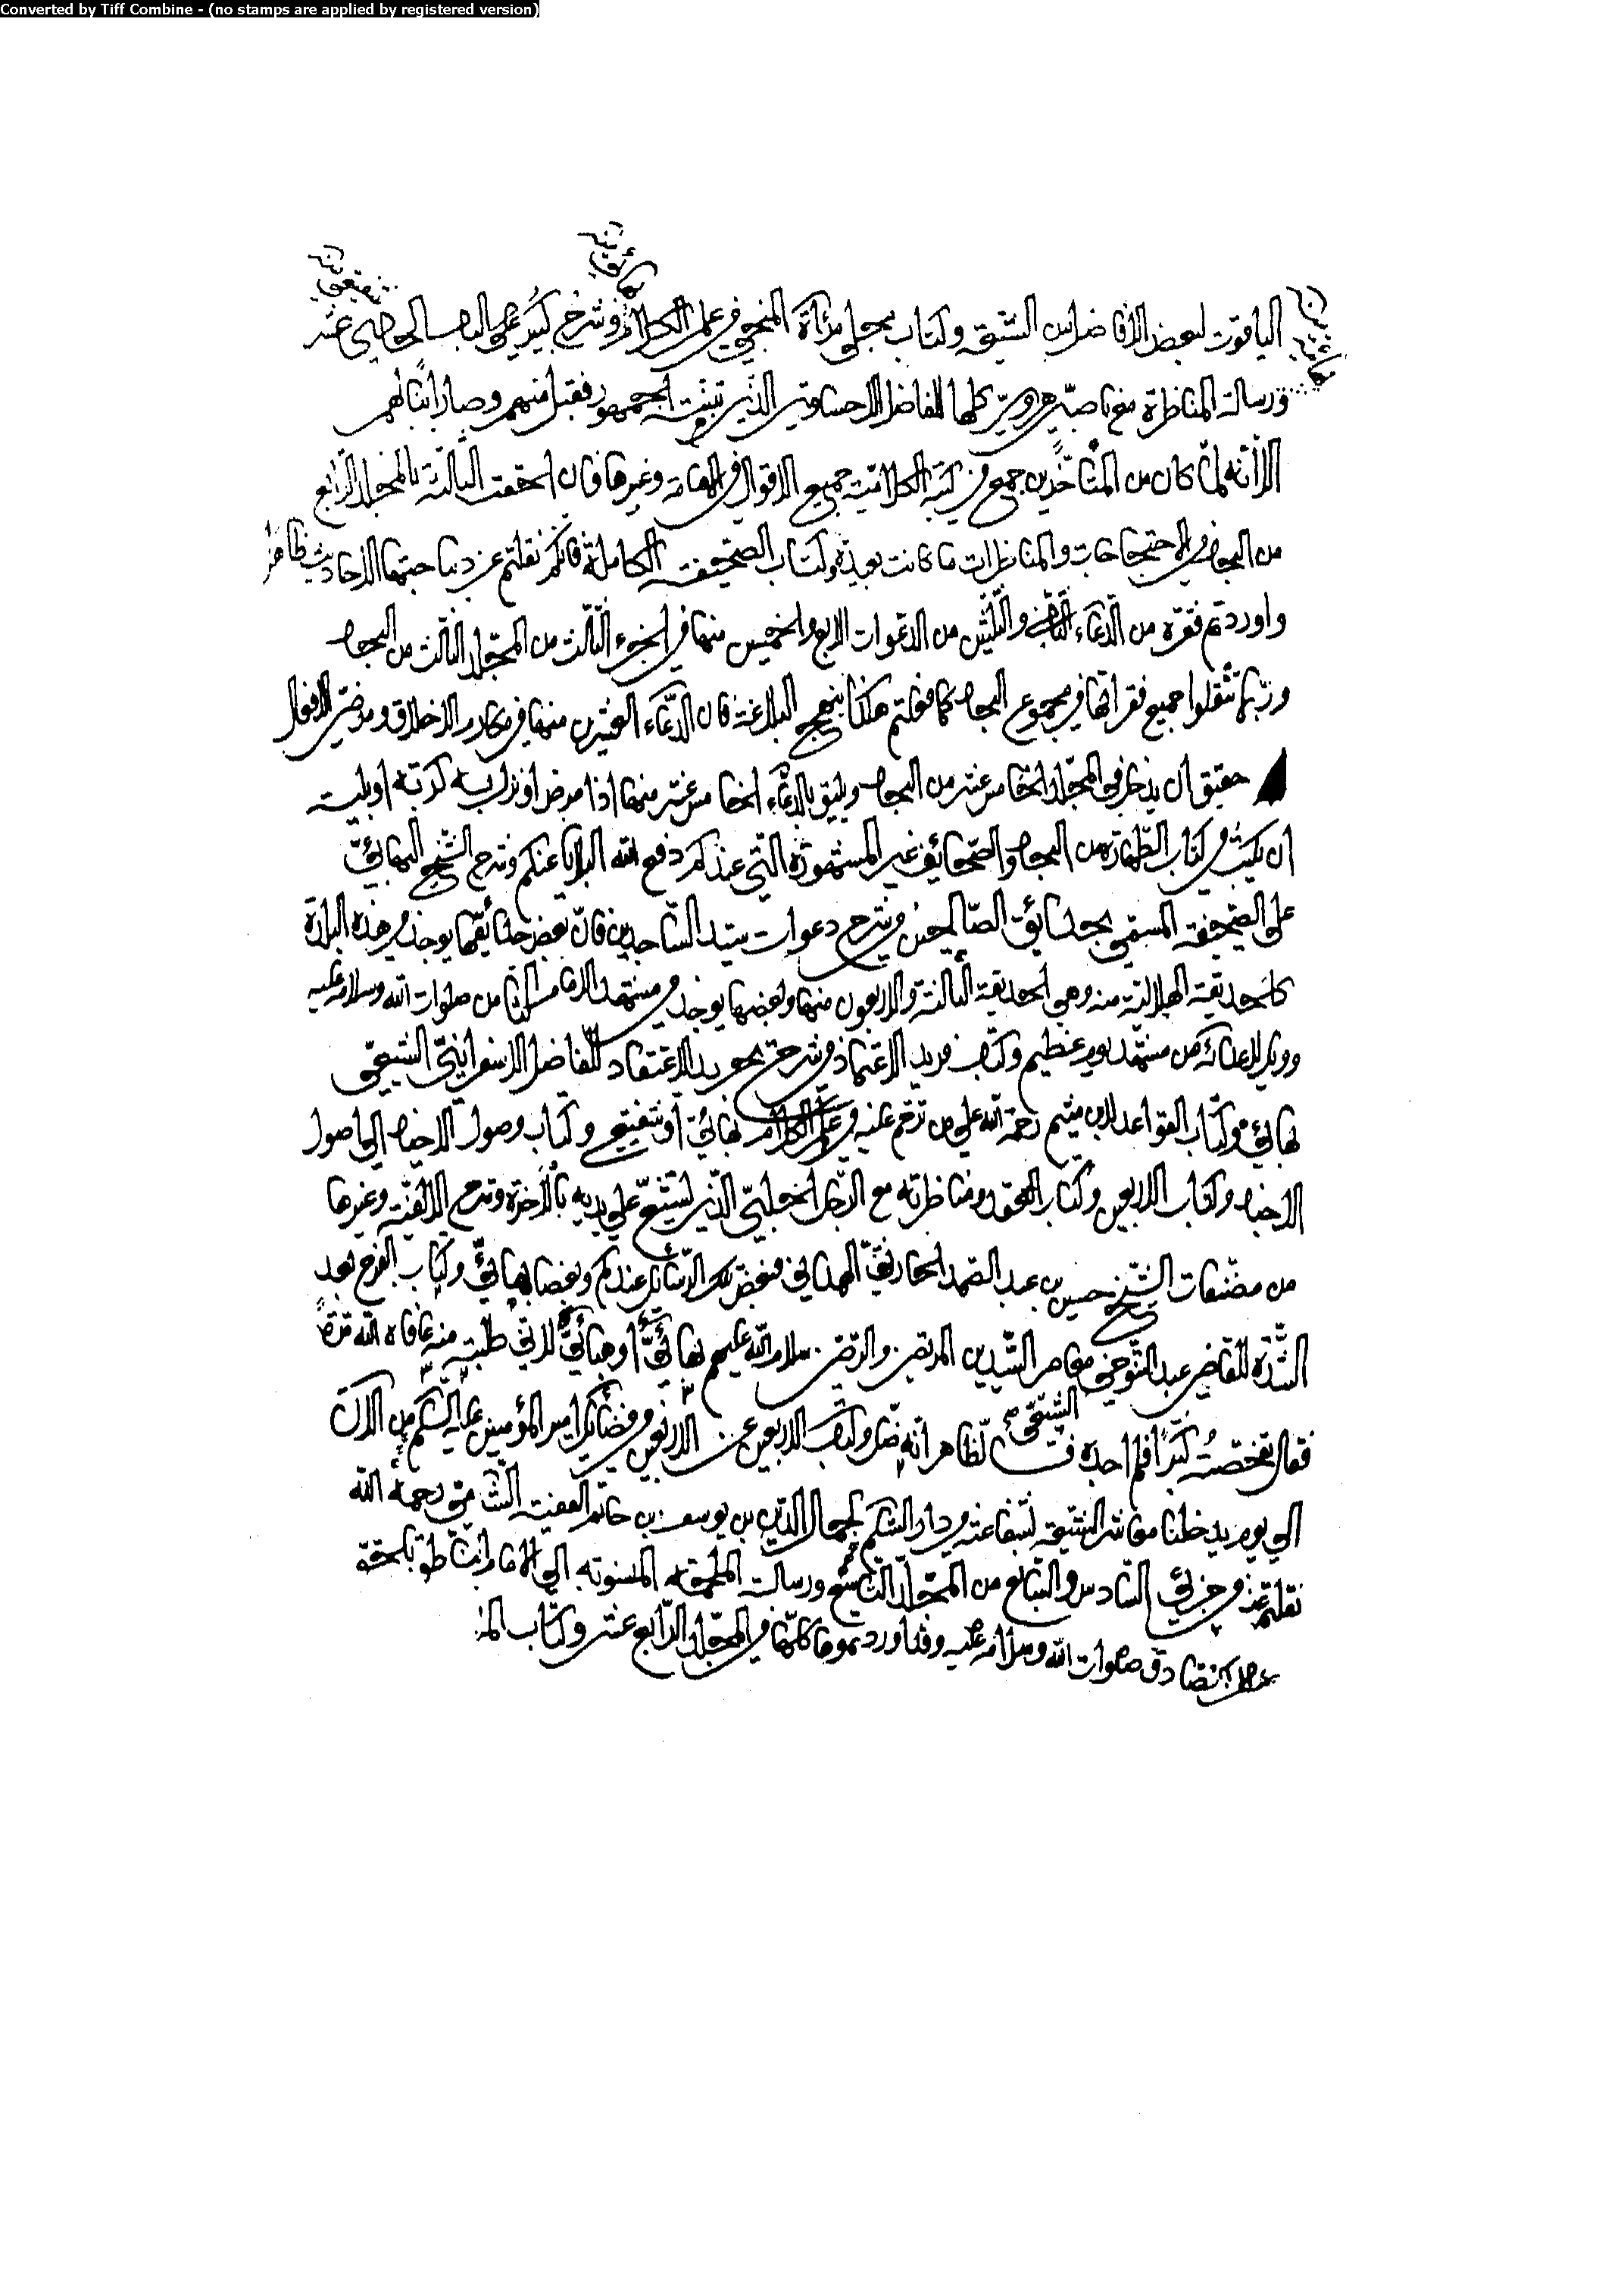 Converted by Tiff Combine - (no stamps are applied by registered version)
الياقوت لبعض الأفاضل من الشيعة وكتاب مجلي مرآة المنجي في علم الكلام وشرح كبير على الباب الحادي عشر
ورسالة المناظرة مع ناصبي هروي كلها للفاضل الاحساوي الذي تبعته الجمهور فقبل منهم وصار
الا أنه لما كان من المتأخرين جمع في كتبه الكلامية جميع الاقوال في الامامة وغيرها فان الحقت الثالثة بالمجلد الرابع
من البحار في الاحتجاجات والمناظرات ما كانت بعيدة وكتاب الصحيفة الكاملة فانكم نقلتم عن ديباجتها الاحاديث ظاهرا
واوردتم فقرة من الدعاء والثلثين من الدعوات الاربع والخمسين منها في الجزء الثالث من المجلد الثالث من البحار
وربما تنقلوا جميع فقراتها في مجموع البحار كما فعلتم هكذا بنهج البلاغة فان الدعاء العشرين منها في مكارم الاخلاق ومرضي الافعال
حقيق ان يذكر في المجلد الخامس عشر من البحار ويليق بالدعاء الخامس عشر منها اذا مرض او نزل به كربة او بلية
ان يكتب في كتاب الطهارة من البحار والصحائف غير المشهورة التي عندكم دفع الله البلايا عنكم وشرح الشيخ البهائي
على الصحيفة المسمى بحدائق الصالحين في شرح دعوات سيد الساجدين فان بعض حدائقها يوجد في هذه البلدة
كالحديقة الهلالية منه وهي الحديقة الثالثة والاربعون منها وبعضها يوجد في مشهد الامام الثامن صلوات الله وسلامه عليه
وويل لاعدائه من مشهد يوم عظيم وكتاب فريد الاعتماد في شرح تجريد الاعتقاد للفاضل الاسفرايني الشيعي
بهائي وكتاب القواعد لابن ميثم رحمة الله على من ترحم عليه في علم الكلام بهائي او شفيعي وكتاب وصول الاخيار الى اصول
الاخبار وكتاب الاربعين وكتاب العقد ومناظرته مع الرجل الحلبي الذي تشيع على يديه بالاخرة وشرح الالفية وغيرها
من مصنفات الشيخ حسين بن عبد الصمد الحارثي الهمداني فبعض تلك الرسائل عندكم وبعضها بهائي وكتاب الفرج بعد
الشدة للقاضي عبد التنوخي معاصر السيدين المرتضى والرضي سلام الله عليهم بهائي او لاني طلبته منه عافاه الله مرة
فقال تفحصت كثيرا فلم اجده الظاهر انه ضل وكتاب الاربعين عن الاربعين في فضائل امير المؤمنين عليه السلام من الآن
الى يوم يدخلنا معاشر الشيعة بشفاعته في دار السلام لجمال الدين بن يوسف بن حاتم الفقيه الشامي رحمه الله
نقلتم عنه في جزئي السادس والسابع من المجلد التاسع ورسالة المنسوبة الى الامام
الصادق صلوات الله وسلامه عليه وقد اوردتموها كلها في المجلد الرابع عشر وكتاب